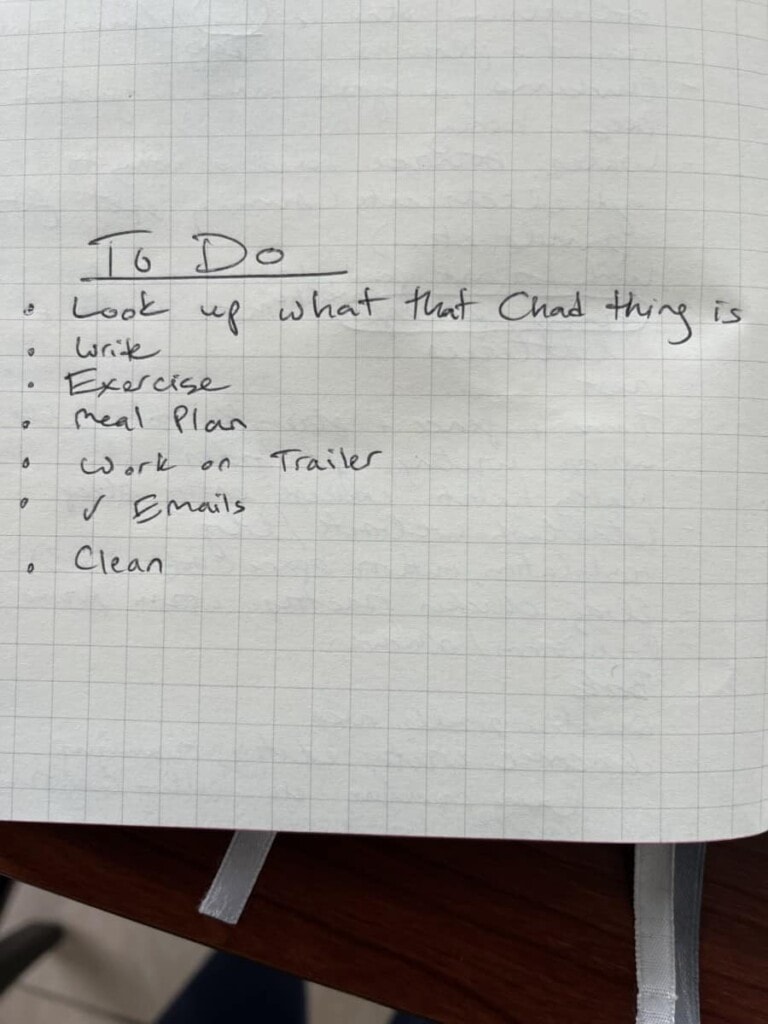 To Do
• Look up what that Chad thing is
• Write
• Exercise
• Meal Plan
• Work on Trailer
• ✓ Emails
• Clean